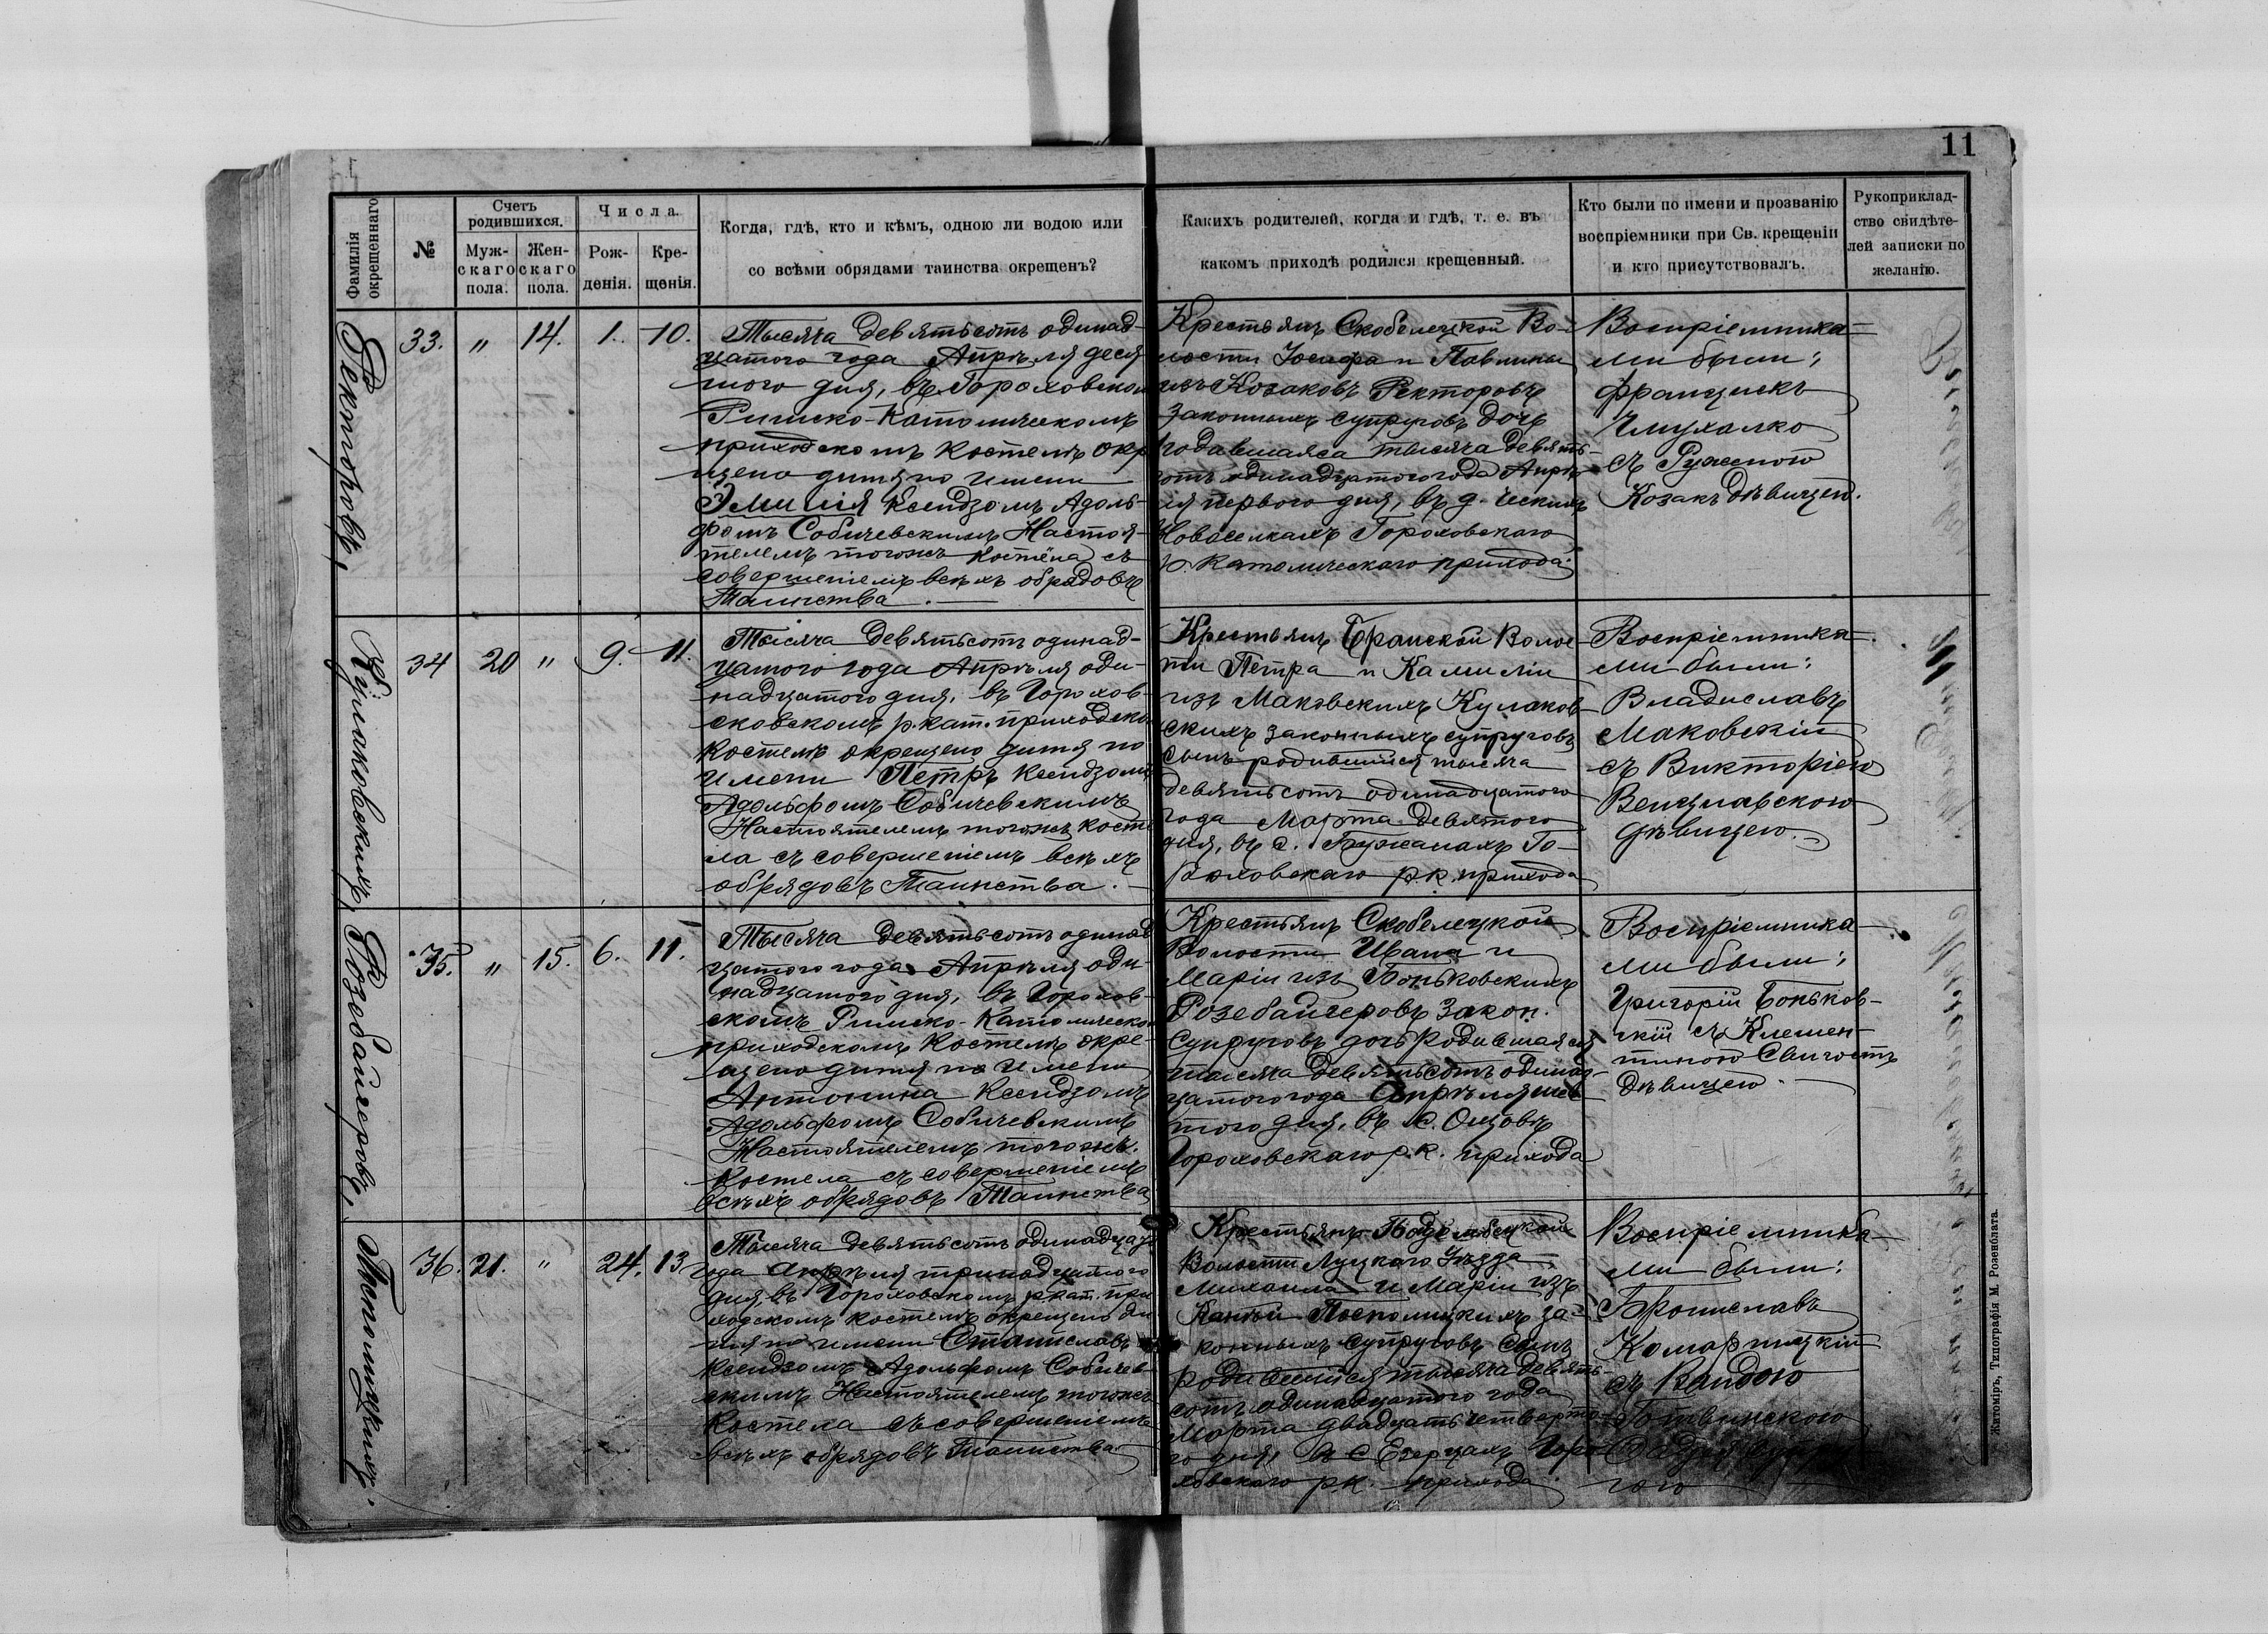 11
Фамилія окрещеннаго
№
Счетъ родившихся.
Муж-
скаго
пола.
Жен-
скаго
пола.
Числа.
Рож-
денія.
Кре-
щенія.
Когда, гдѣ, кто и кѣмъ, одною ли водою или
со всѣми обрядами таинства окрещенъ?
Какихъ родителей, когда и гдѣ, т. е. въ
какомъ приходѣ родился крещенный.
Кто были по имени и прозванію
воспріемники при Св. крещеніи
и кто присутствовалъ.
Рукоприклад-
ство свидѣте-
лей записки по
желанію.
Ректоровъ,
33. " 14. 1. 10.
Тысяча девятьсотъ одинад-
цатого года Апрѣля деся
таго дня, въ Гороховском
Римско-Католическомъ
приходскомъ костелѣ окре
щено дитя по имени
Эмилія Ксендзомъ Адоль-
фомъ Собичевскимъ Настоя-
телемъ тогожъ костёла съ
совершеніемъ всѣхъ обрядовъ
Таинства. —
Крестьянъ Скобелецкой Во-
лости Іосифа и Павлины
изъ Козаковъ Ректоровъ
законныхъ супруговъ дочь
родавшаяся тысяча девять-
сотъ одинадцатого года Апрѣ
ля перваго дня, въ д. Ческихъ
Новоселкахъ Гороховскаго
р. Католическаго прихода.
Воспріемника-
ми были:
Францискъ
Глухалко
съ Ружею
Козакъ дѣвицею.
Кулаковскихъ,
34 20 " 9. 11.
Тысяча девятьсотъ одинад-
цатого года Апрѣля оди-
надцатого дня, въ Горохов-
сковскомъ р. кат. приходско
костелѣ окрещено дитя по
имени Петръ Ксендзомъ
Адольфомъ Собичевскимъ
Настоятелемъ тогожъ косте
ла съ совершеніемъ всѣхъ
обрядовъ Таинства. —
Крестьянъ Бранской Волос-
ти Петра и Камиліи
изъ Маковскихъ Кулаков-
скихъ законныхъ супруговъ
сынъ родившійся тысяча
девятьсотъ одинадцатого
года Марта девятого
дня, въ с. Бужанахъ Го-
роховскаго р.к. прихода
Воспріемника-
ми были:
Владиславъ
Маковскій
съ Викторіею
Венцлавскою
дѣвицею. —
Розебайгеровъ,
35. " 15. 6. 11.
Тысяча девятьсотъ одинад
цатого года Апрѣля оди-
надцатого дня, въ Горохов-
скомъ Римско-Католическо
приходскомъ Костелѣ окре-
щено дитя по имени
Антонина Ксендзомъ
Адольфомъ Собичевскимъ
Настоятелемъ тогожъ
Костела съ совершеніемъ
всѣхъ обрядовъ Таинства
Крестьянъ Скобелецкой
Волости Ивана и
Маріи изъ Боньковскихъ
Розебайгеровъ закон.
супруговъ дочь родившаяся
тысяча девятьсотъ одинад-
цатого года Апрѣля шес
того дня, въ с.
Гороховскаго р.к. прихода
Воспріемника-
ми были:
Григорій Боньков-
скій съ Клемен-
тиною
дѣвицею. —
36. 21. " 24. 13
Тысяча девятьсотъ одинадцатаго
года Апрѣля тринадцатого
дня, въ Гороховскомъ р.кат. при
ходскомъ костелѣ окрещено ди
тя по имени Станиславъ
Ксендзомъ Адольфомъ Собичев-
скимъ Настоятелемъ тогожъ
Костела съ совершеніемъ
всѣхъ обрядовъ Таинства.
Крестьянъ
Волости Луцкаго Уѣзда
Михаила и Маріи изъ
за-
конныхъ супруговъ сынъ
родившійся тысяча девять-
сотъ одинадцатого года
Марта двадцать четверта-
го дня, въ с. Езерцахъ Горо
ховскаго р.к. прихода.
Воспріемника-
ми были:
Брониславъ
Комарницкій
съ Вандою
гою —
Житоміръ, Типографія М. Розенблата.